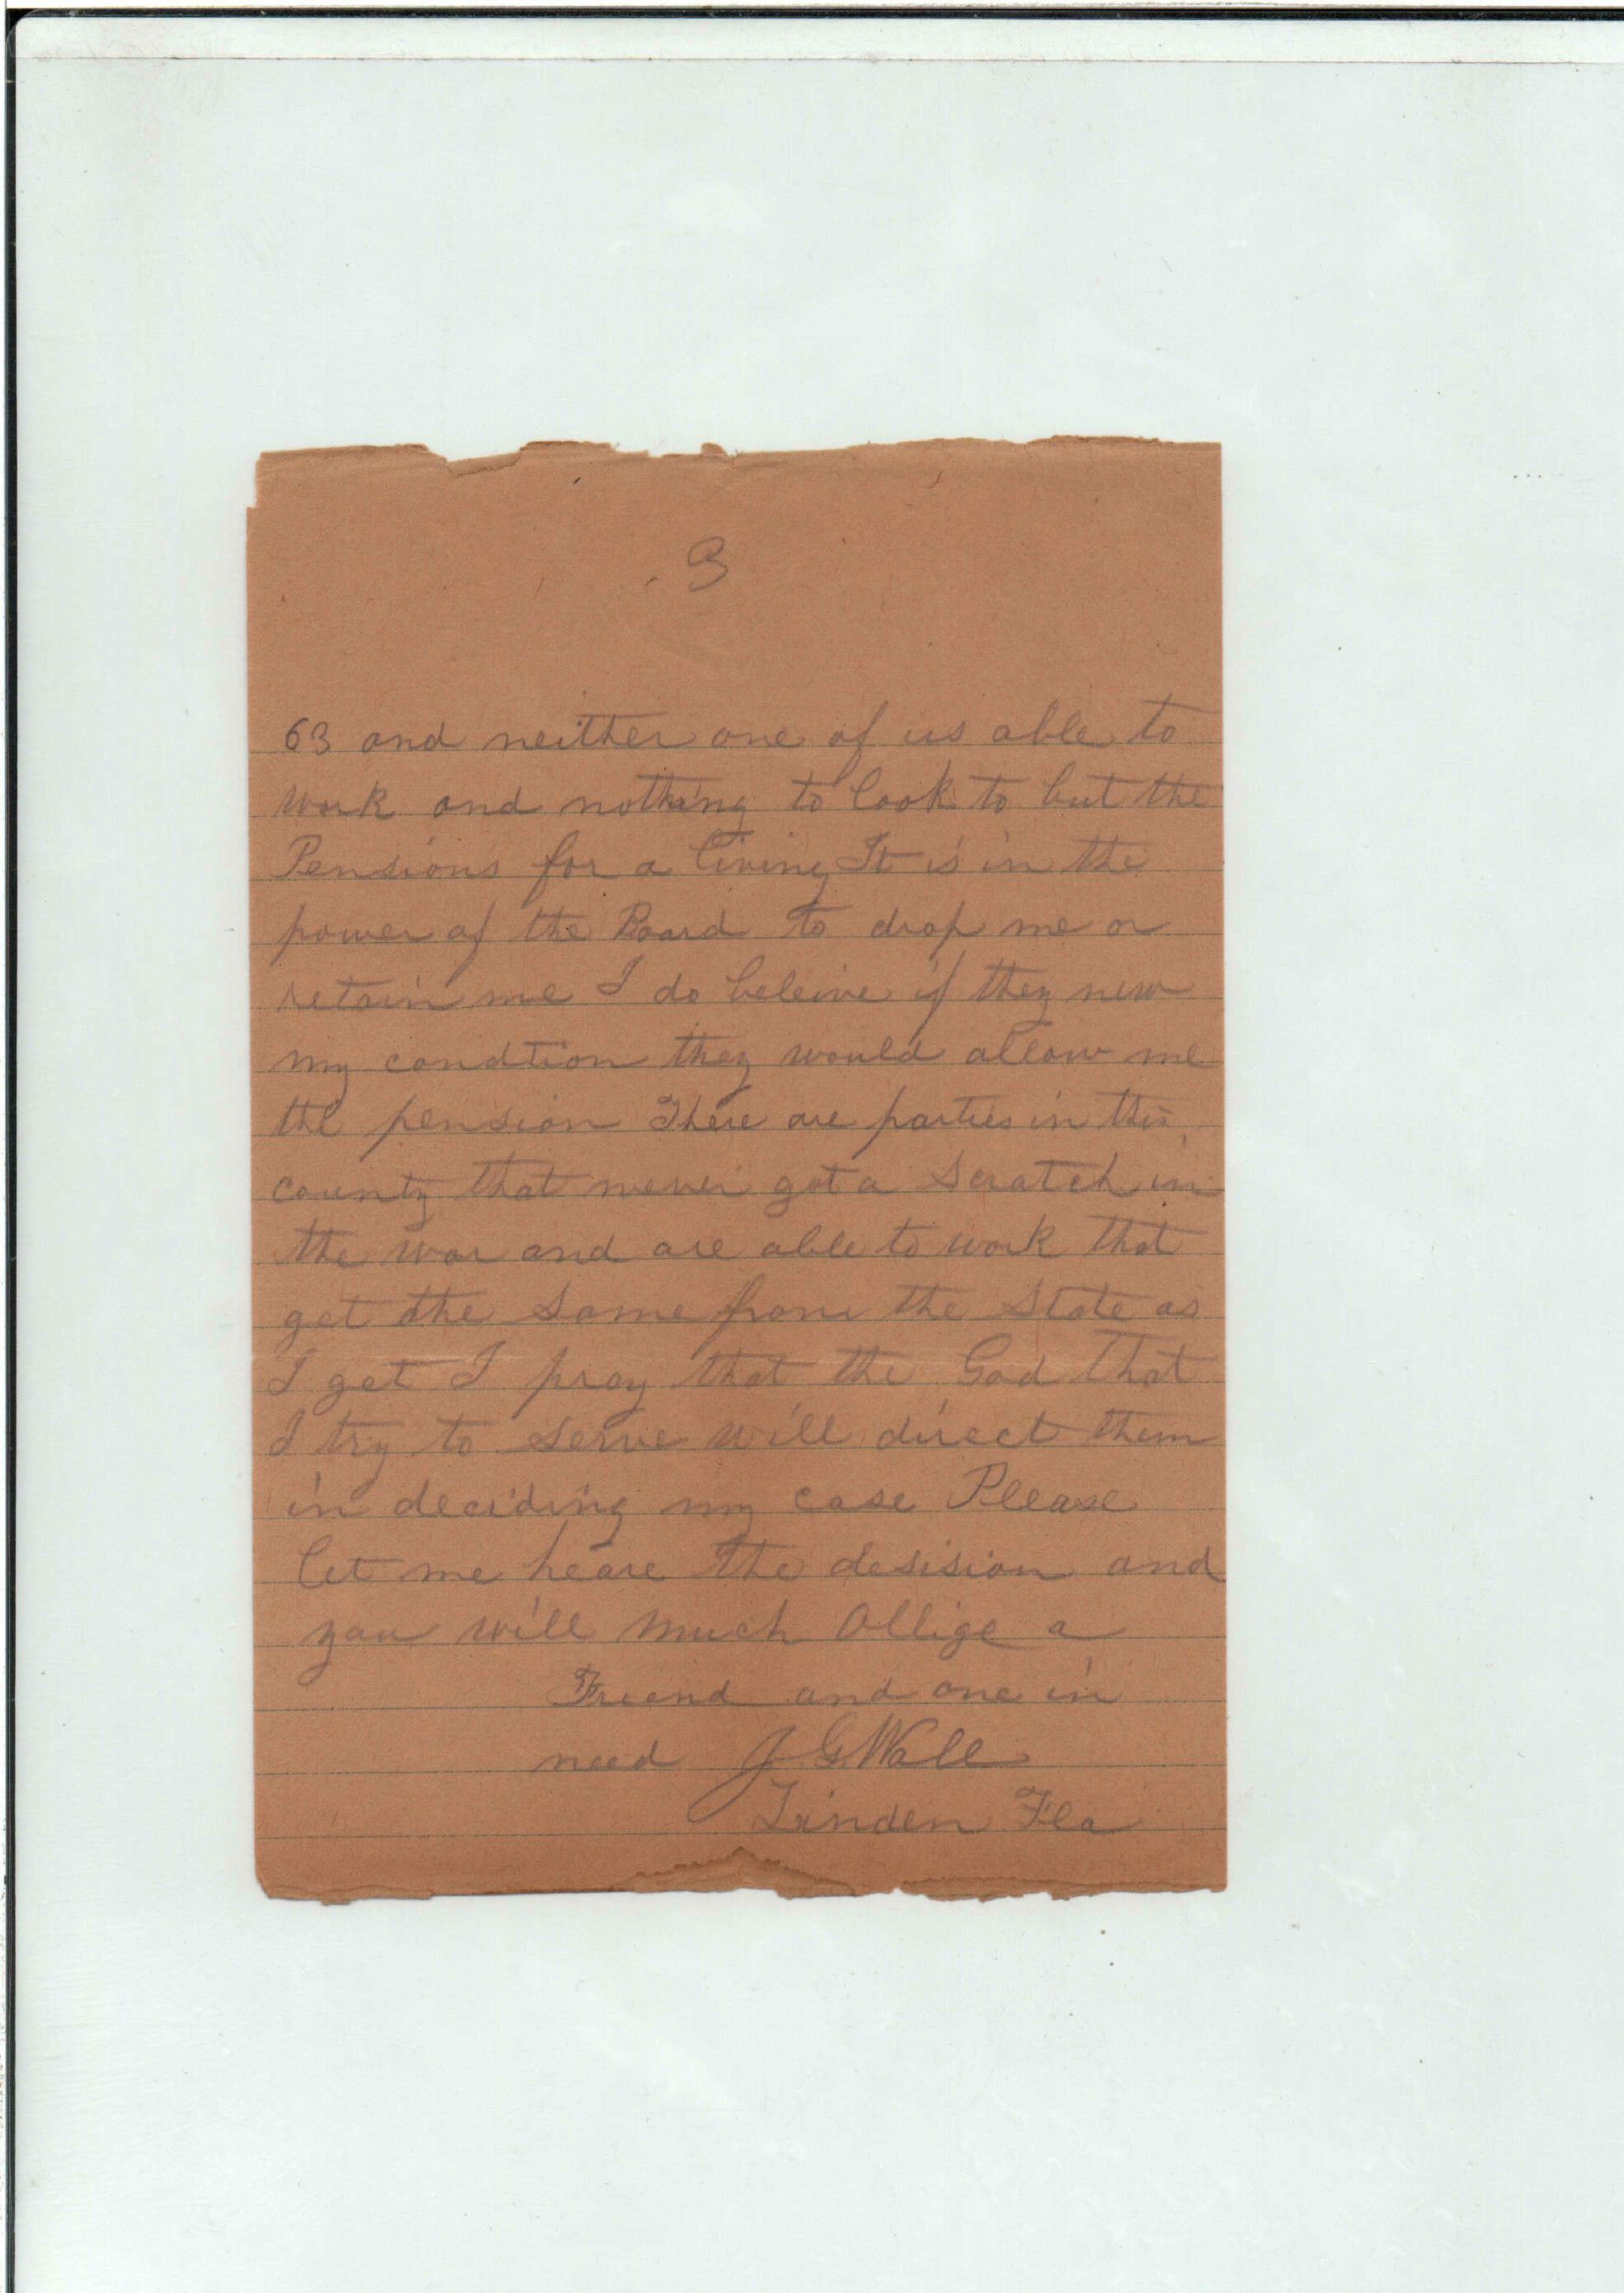 3
63 and neither one of us able to
work and nothing to look to but the
Pensions for a living It is in the
power of the Board to drop me or
retain me I do beleive if they new
my condtion they would allow me
the pension There are parties in this
county that never got a scratch in
the war and are able to work that
get the same from the State as
I get I pray that the God that
I try to serve will direct them
in deciding my case Please
let me heare the desision and
you will much Oblige a
Friend and one in
need J. G. Wall
Linden Fla